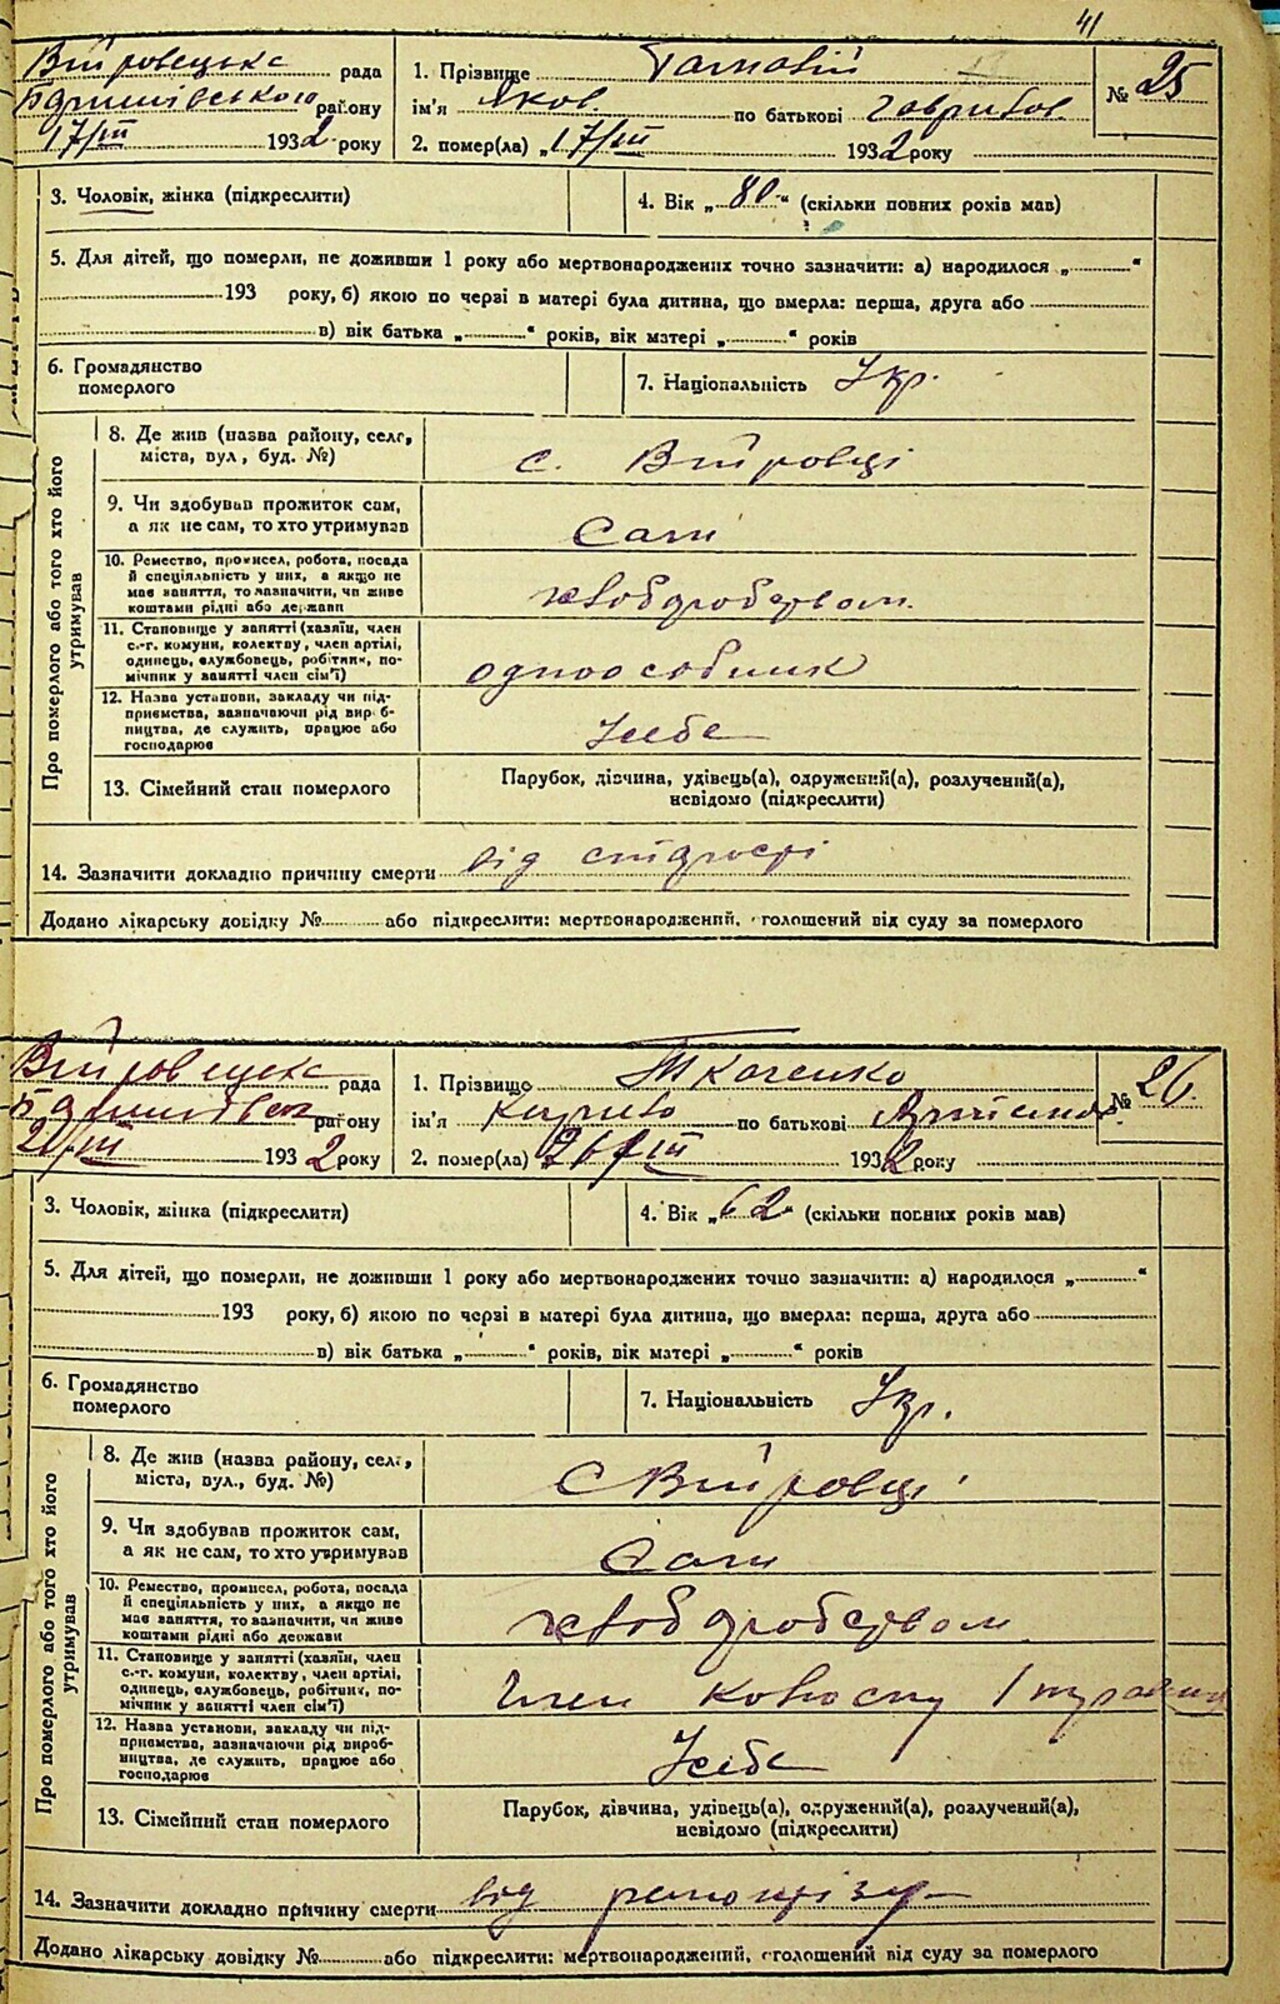 41
Війтовецька рада
Баришівського району
17/III 1932 року
1. Прізвище
ім'я Яков. по батькові Гаврилов.
2. помер(ла) „17/III 1932 року
№ 25
3. Чоловік, жінка (підкреслити)
4. Вік „80“ (скільки повних рохів мав)
5. Для дітей, що померли, не доживши 1 року або мертвонароджених точно зазначити: а) народилося „ “
193 року, б) якою по черзі в матері була дитина, що вмерла: перша, друга або
в) вік батька „ “ років, вік матері „ “ років
6. Громадянство
померлого
7. Національність Укр.
Про померлого або того хто його
утримував
8. Де жив (назва району, село,
міста, вул, буд. №)
с.
9. Чи здобував прожиток сам,
а як не сам, то хто утримував
Сам
10. Ремество, промисел, робота, посада
й спеціяльність у них, а якщо не
має заняття, то зазначити, чи живе
коштами рідні або держави
хліборобством
11. Становище у занятті (хазяїн, член
с.-г. комуни, колективу, член артілі,
одинець, службовець, робітник, по-
мічник у занятті член сім'ї)
одноосібник
12. Назва установи, закладу чи під-
приємства, зазначаючи рід вироб-
ництва, де служить, працює або
господарює
У себе
13. Сімейний стан померлого
Парубок, дівчина, удівець(а), одружений(а), розлучений(а),
невідомо (підкреслити)
14. Зазначити докладно причину смерти від старості
Додано лікарську довідку № або підкреслити: мертвонароджений, оголошений від суду за померлого
рада
району
/III 1932 року
1. Прізвище Ткаченко
ім'я Кирило по батькові
2. помер(ла) 26/III 1932 року
№ 26.
3. Чоловік, жінка (підкреслити)
4. Вік „62“ (скільки повних років мав)
5. Для дітей, що померли, не доживши 1 року або мертвонароджених точно зазначити: а) народилося „ “
193 року, б) якою по черзі в матері була дитина, що вмерла: перша, друга або
в) вік батька „ “ років, вік матері „ “ років
6. Громадянство
померлого
7. Національність Укр.
Про померлого або того хто його
утримував
8. Де жив (назва району, село,
міста, вул., буд. №)
с
9. Чи здобував прожиток сам,
а як не сам, то хто утримував
Сам
10. Ремество, промисел, робота, посада
й спеціяльність у них, а якщо не
має заняття, то зазначити, чи живе
коштами рідні або держави
хліборобством
11. Становище у занятті (хазяїн, член
с.-г. комуни, колективу, член артілі,
одинець, службовець, робітник, по-
мічник у занятті член сім'ї)
член колгоспу
12. Назва установи, закладу чи під-
приємства, зазначаючи рід вироб-
ництва, де служить, працює або
господарює
У себе
13. Сімейний стан померлого
Парубок, дівчина, удівець(а), одружений(а), розлучений(а),
невідомо (підкреслити)
14. Зазначити докладно причину смерти від
Додано лікарську довідку № або підкреслити: мертвонароджений, оголошений від суду за померлого